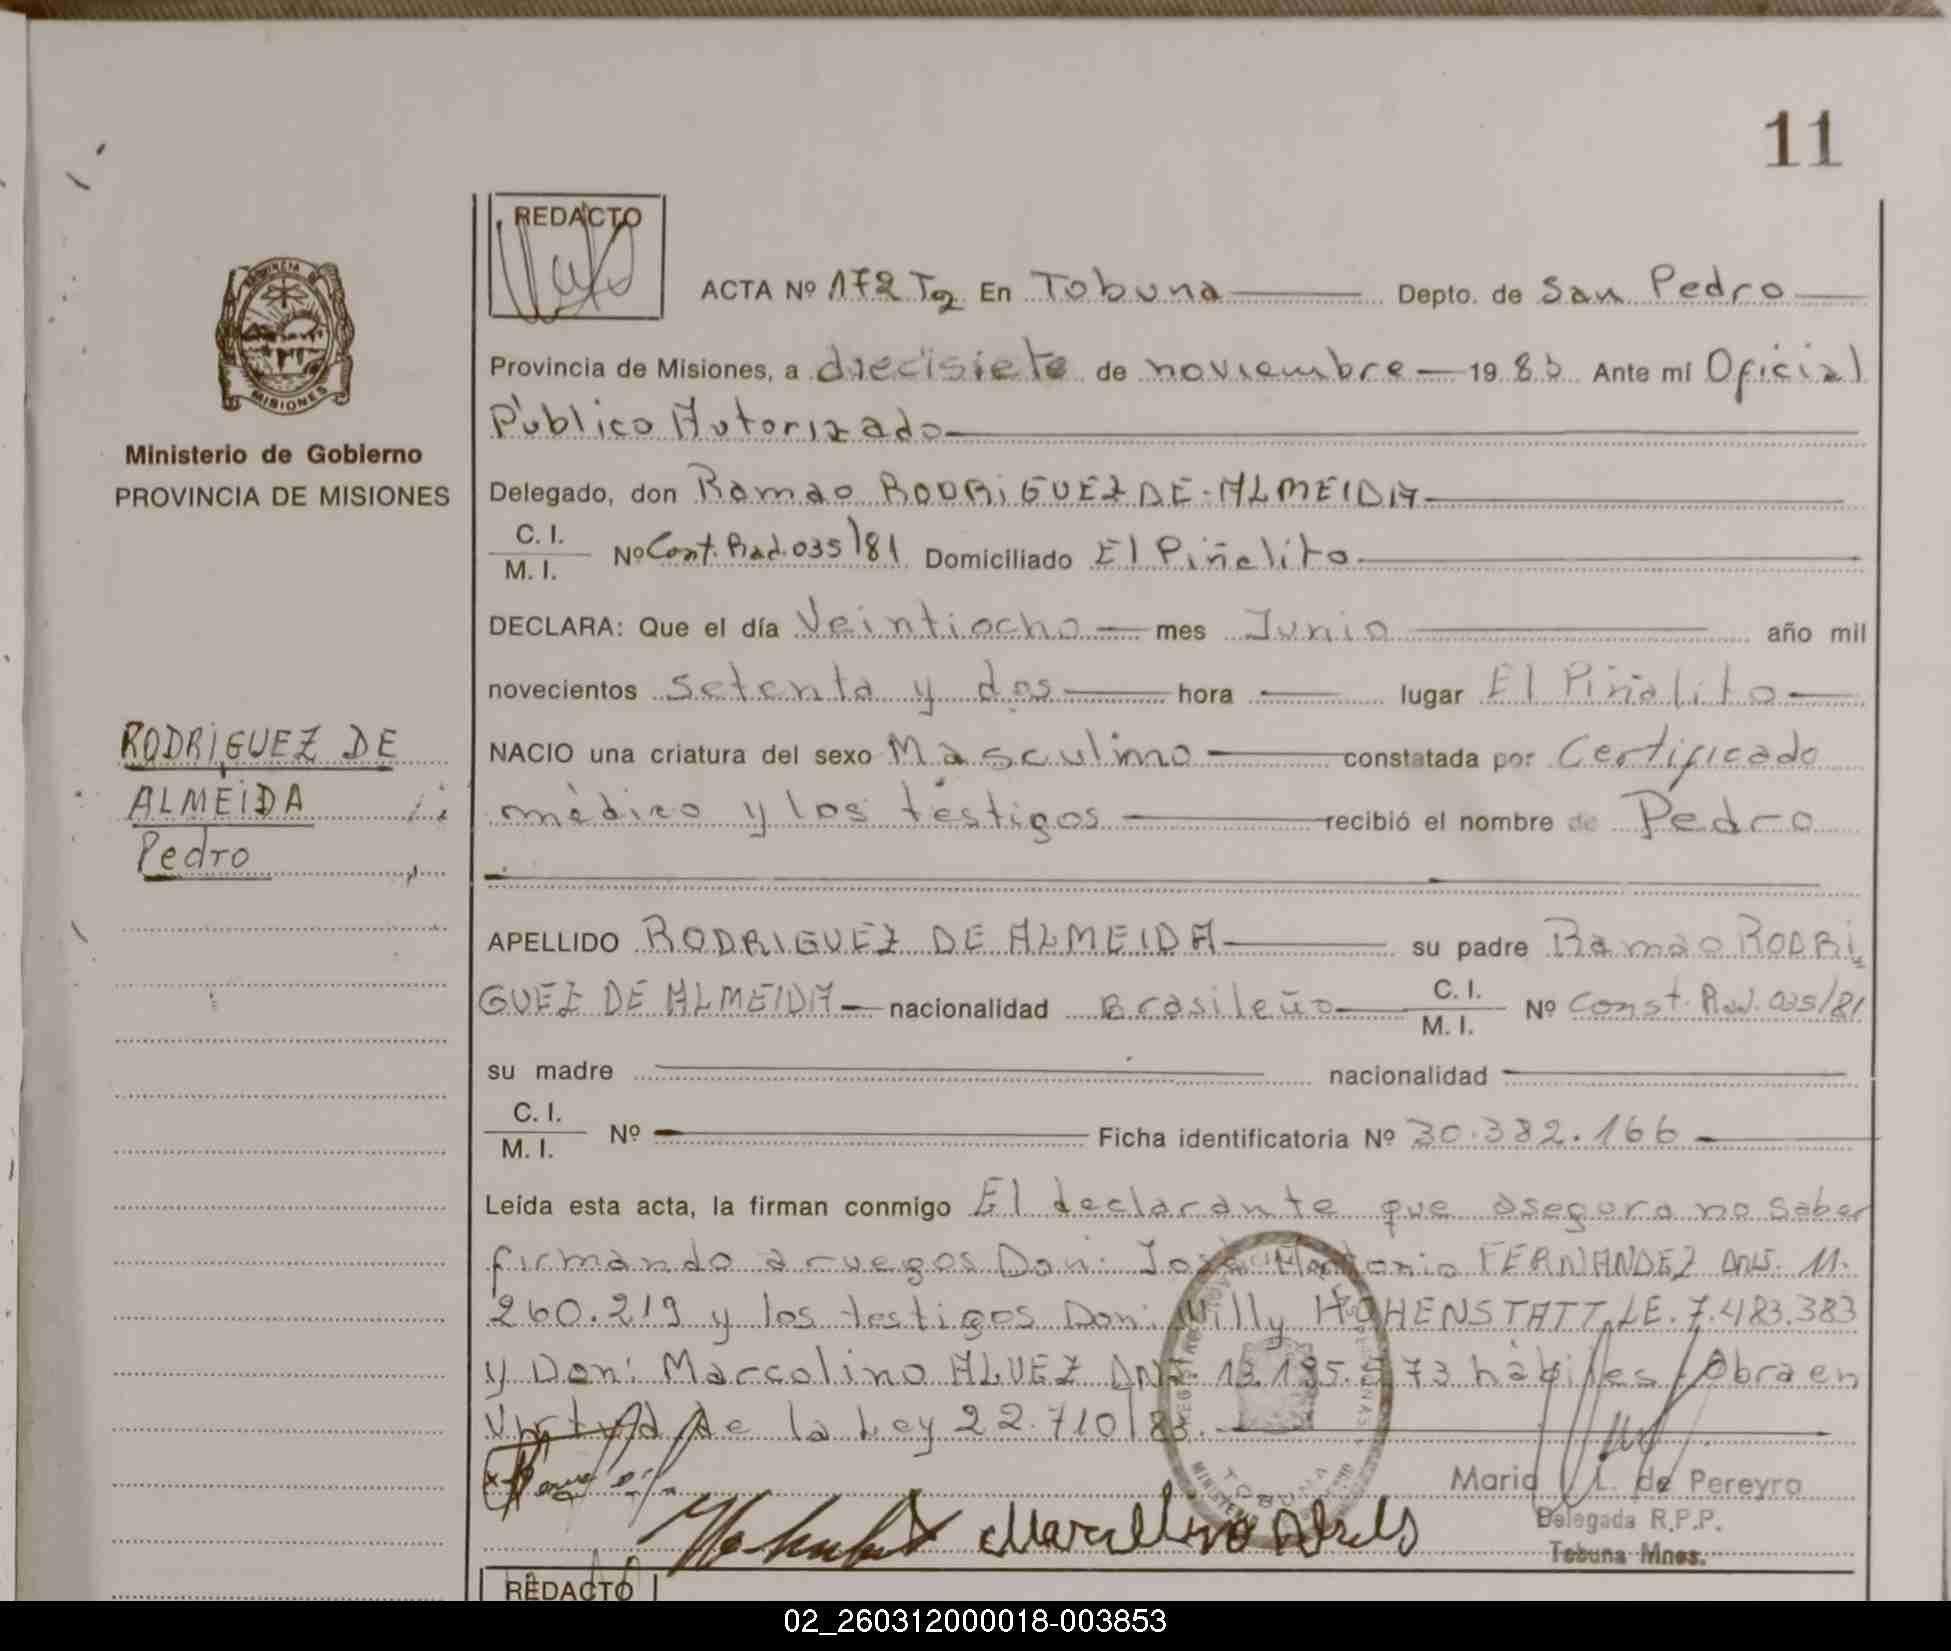 11
REDACTO
ACTA Nº 172 T2 En Tobuna Depto. de San Pedro
Provincia de Misiones, a diecisiete de noviembre 1983 Ante mi Oficial
Público Autorizado
Delegado, don Ramao RODRiGUEZ DE-ALMEIDA
C. I.
M. I. Nº Cont. Rad. 035/81 Domiciliado El Piñalito
DECLARA: Que el día Veintiocho mes Junio año mil
novecientos setenta y dos hora lugar El Piñalito
NACIO una criatura del sexo Masculino constatada por Certificado
médico y los testigos recibió el nombre de Pedro
APELLIDO RODRIGUEZ DE ALMEIDA su padre Ramao RODRI
GUEZ DE ALMEIDA nacionalidad Brasileño C. I.
M. I. Nº Const. Rad. 035/81
su madre nacionalidad
C. I.
M. I. Nº Ficha identificatoria Nº 30.382.166
Leída esta acta, la firman conmigo El declarante que asegura no saber
firmando a ruegos Don: José Antonio FERNANDEZ DNI. 11.
260.219 y los testigos Don: Willy HOHENSTATT LE. 7.483.383
y Don: Marcolino ALVEZ DNI. 13.195.573 hábiles Obra en
Virtud de la Ley 22.710/83.
Maria L. de Pereyra
Delegada R.P.P.
Tobuna Mnes.
PROVINCIA DE
MISIONES
Ministerio de Gobierno
PROVINCIA DE MISIONES
RODRiGUEZ DE
ALMEIDA
Pedro
TOBUNA
REDACTO
02_260312000018-003853